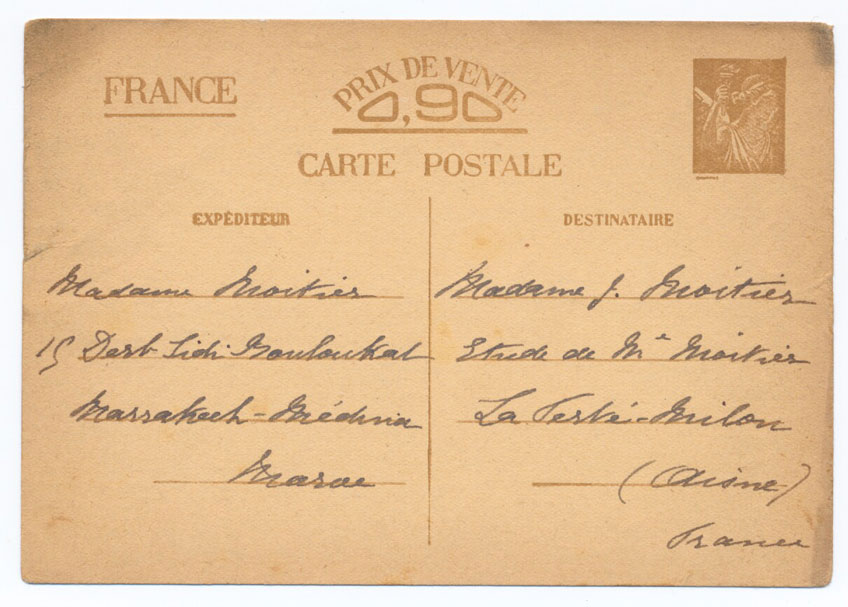 FRANCE
PRIX DE VENTE
0,90
CARTE POSTALE
EXPÉDITEUR
Madame Moitier
15 Derb Sidi Bouloukat
Marrakech-Médina
Maroc
DESTINATAIRE
Madame J. Moitier
Etude de Me Moitier
La Ferté-Milon
(Aisne)
France